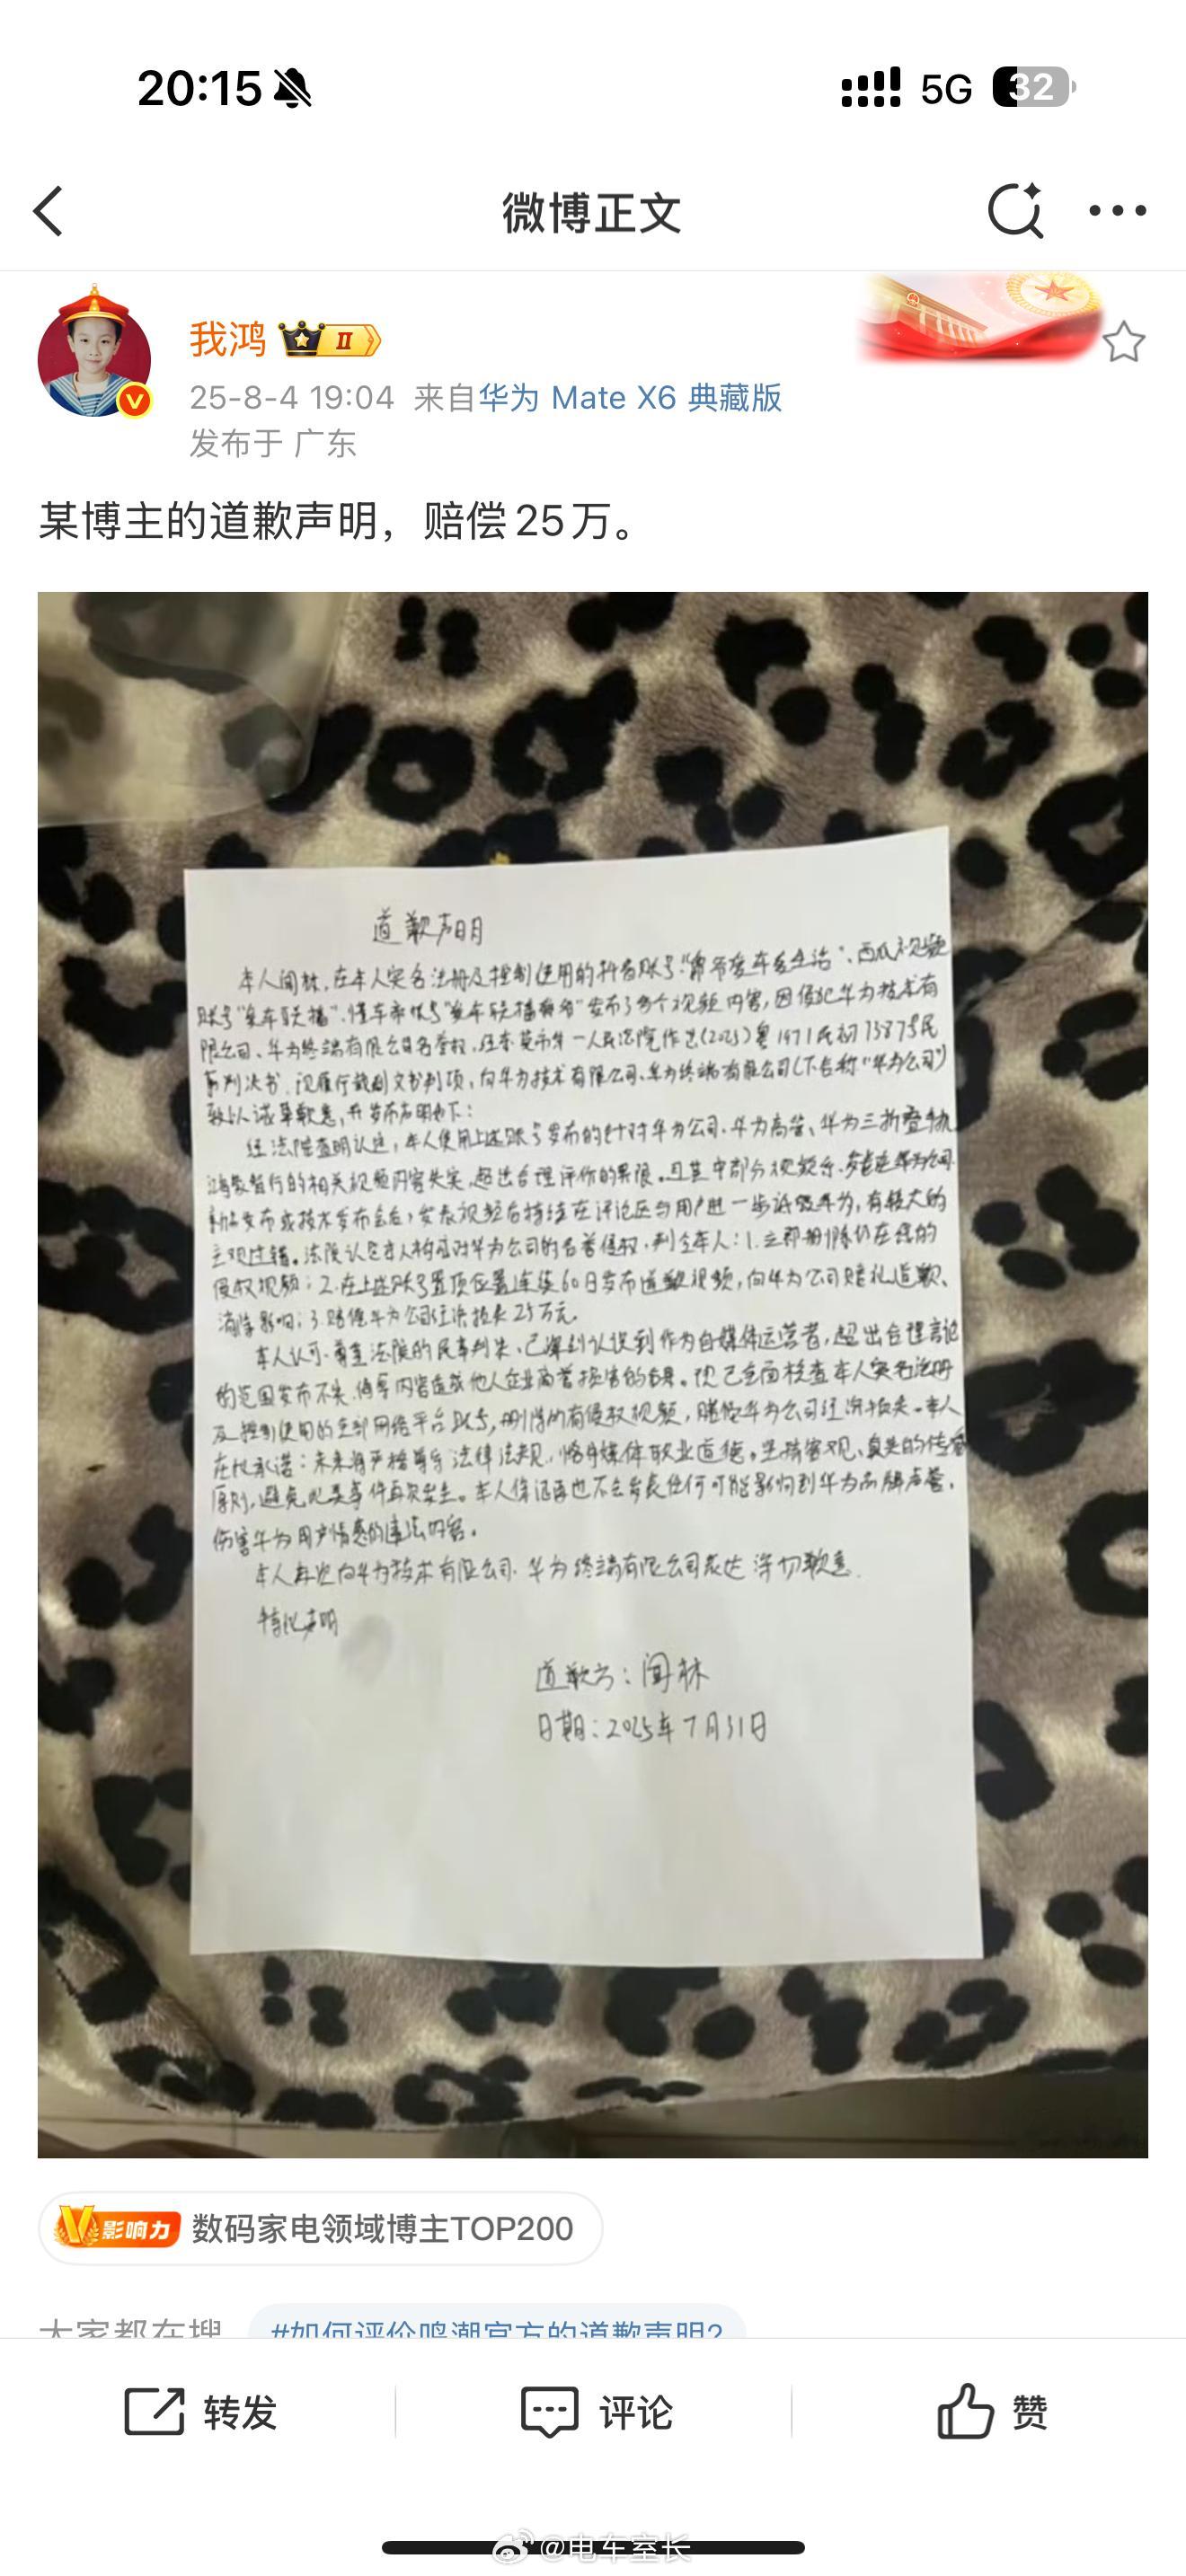 20:15
5G
32
微博正文
我鸿
II
25-8-4 19:04 来自华为 Mate X6 典藏版
发布于 广东
某博主的道歉声明，赔偿25万。
道歉声明
本人闻林，在本人实名注册及控制使用的抖音账号"爱车爱生活"、西瓜视频
账号"爱车联播"、懂车帝账号"爱车联播"发布了多个视频内容，因侵犯华为技术有
限公司、华为终端有限公司名誉权，经东莞市第一人民法院作出(2025)粤1971民初
事判决书，现履行裁判文书判项，向华为技术有限公司、华为终端有限公司(下合称"华为公司")
致以诚挚歉意，并发布声明如下：
经法院查明认定，本人使用上述账号发布的针对华为公司、华为高管、华为三折叠手机、
鸿蒙智行的相关视频内容失实，超出合理评价的界限。且其中部分视频系华为公司
新品发布或技术发布会后，发表视频后持续在评论区与用户进一步诋毁华为，有较大的
主观过错。法院认定本人构成对华为公司的名誉侵权，判令本人：1.立即删除仍在线的
侵权视频；2.在上述账号置顶位置连续60日发布道歉视频，向华为公司赔礼道歉、
消除影响；3.赔偿华为公司经济损失25万元。
本人认可、尊重法院的民事判决，已深刻认识到作为自媒体运营者，超出合理言论
的范围发布不实、侮辱内容造成他人企业商誉损害的后果。现已全面核查本人实名注册
及控制使用的全部网络平台账号，删除所有侵权视频，赔偿华为公司经济损失。本人
在此承诺：未来将严格遵守法律法规，恪守媒体职业道德。坚持客观、真实的传播
原则，避免此类事件再次发生。本人保证再也不会发表任何可能影响到华为品牌声誉，
伤害华为用户情感的违法内容。
本人再次向华为技术有限公司、华为终端有限公司表达深切歉意。
特此声明
道歉方：闻林
日期：2025年7月31日
影响力 数码家电领域博主TOP200
大家都在搜 #如何评价鸣潮官方的道歉声明?
转发 评论 赞
@电车室长